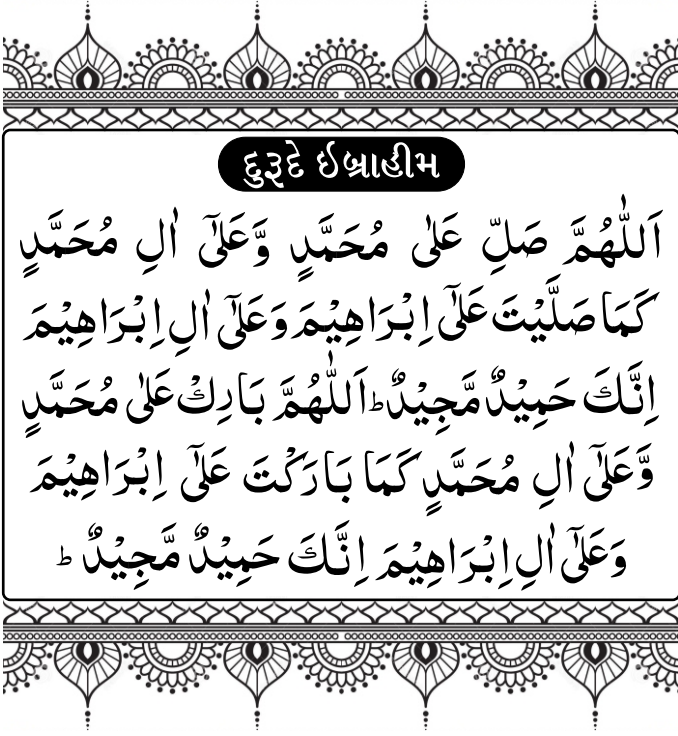 દુરૂદે ઇબ્રાહીમ
اَللّٰهُمَّ صَلِّ عَلٰى مُحَمَّدٍ وَّعَلٰٓى اٰلِ مُحَمَّدٍ
كَمَا صَلَّيْتَ عَلٰٓى اِبْرَاهِيْمَ وَعَلٰٓى اٰلِ اِبْرَاهِيْمَ
اِنَّكَ حَمِيْدٌ مَّجِيْدٌ ؕ اَللّٰهُمَّ بَارِكْ عَلٰى مُحَمَّدٍ
وَّعَلٰٓى اٰلِ مُحَمَّدٍ كَمَا بَارَكْتَ عَلٰٓى اِبْرَاهِيْمَ
وَعَلٰٓى اٰلِ اِبْرَاهِيْمَ اِنَّكَ حَمِيْدٌ مَّجِيْدٌ ؕ